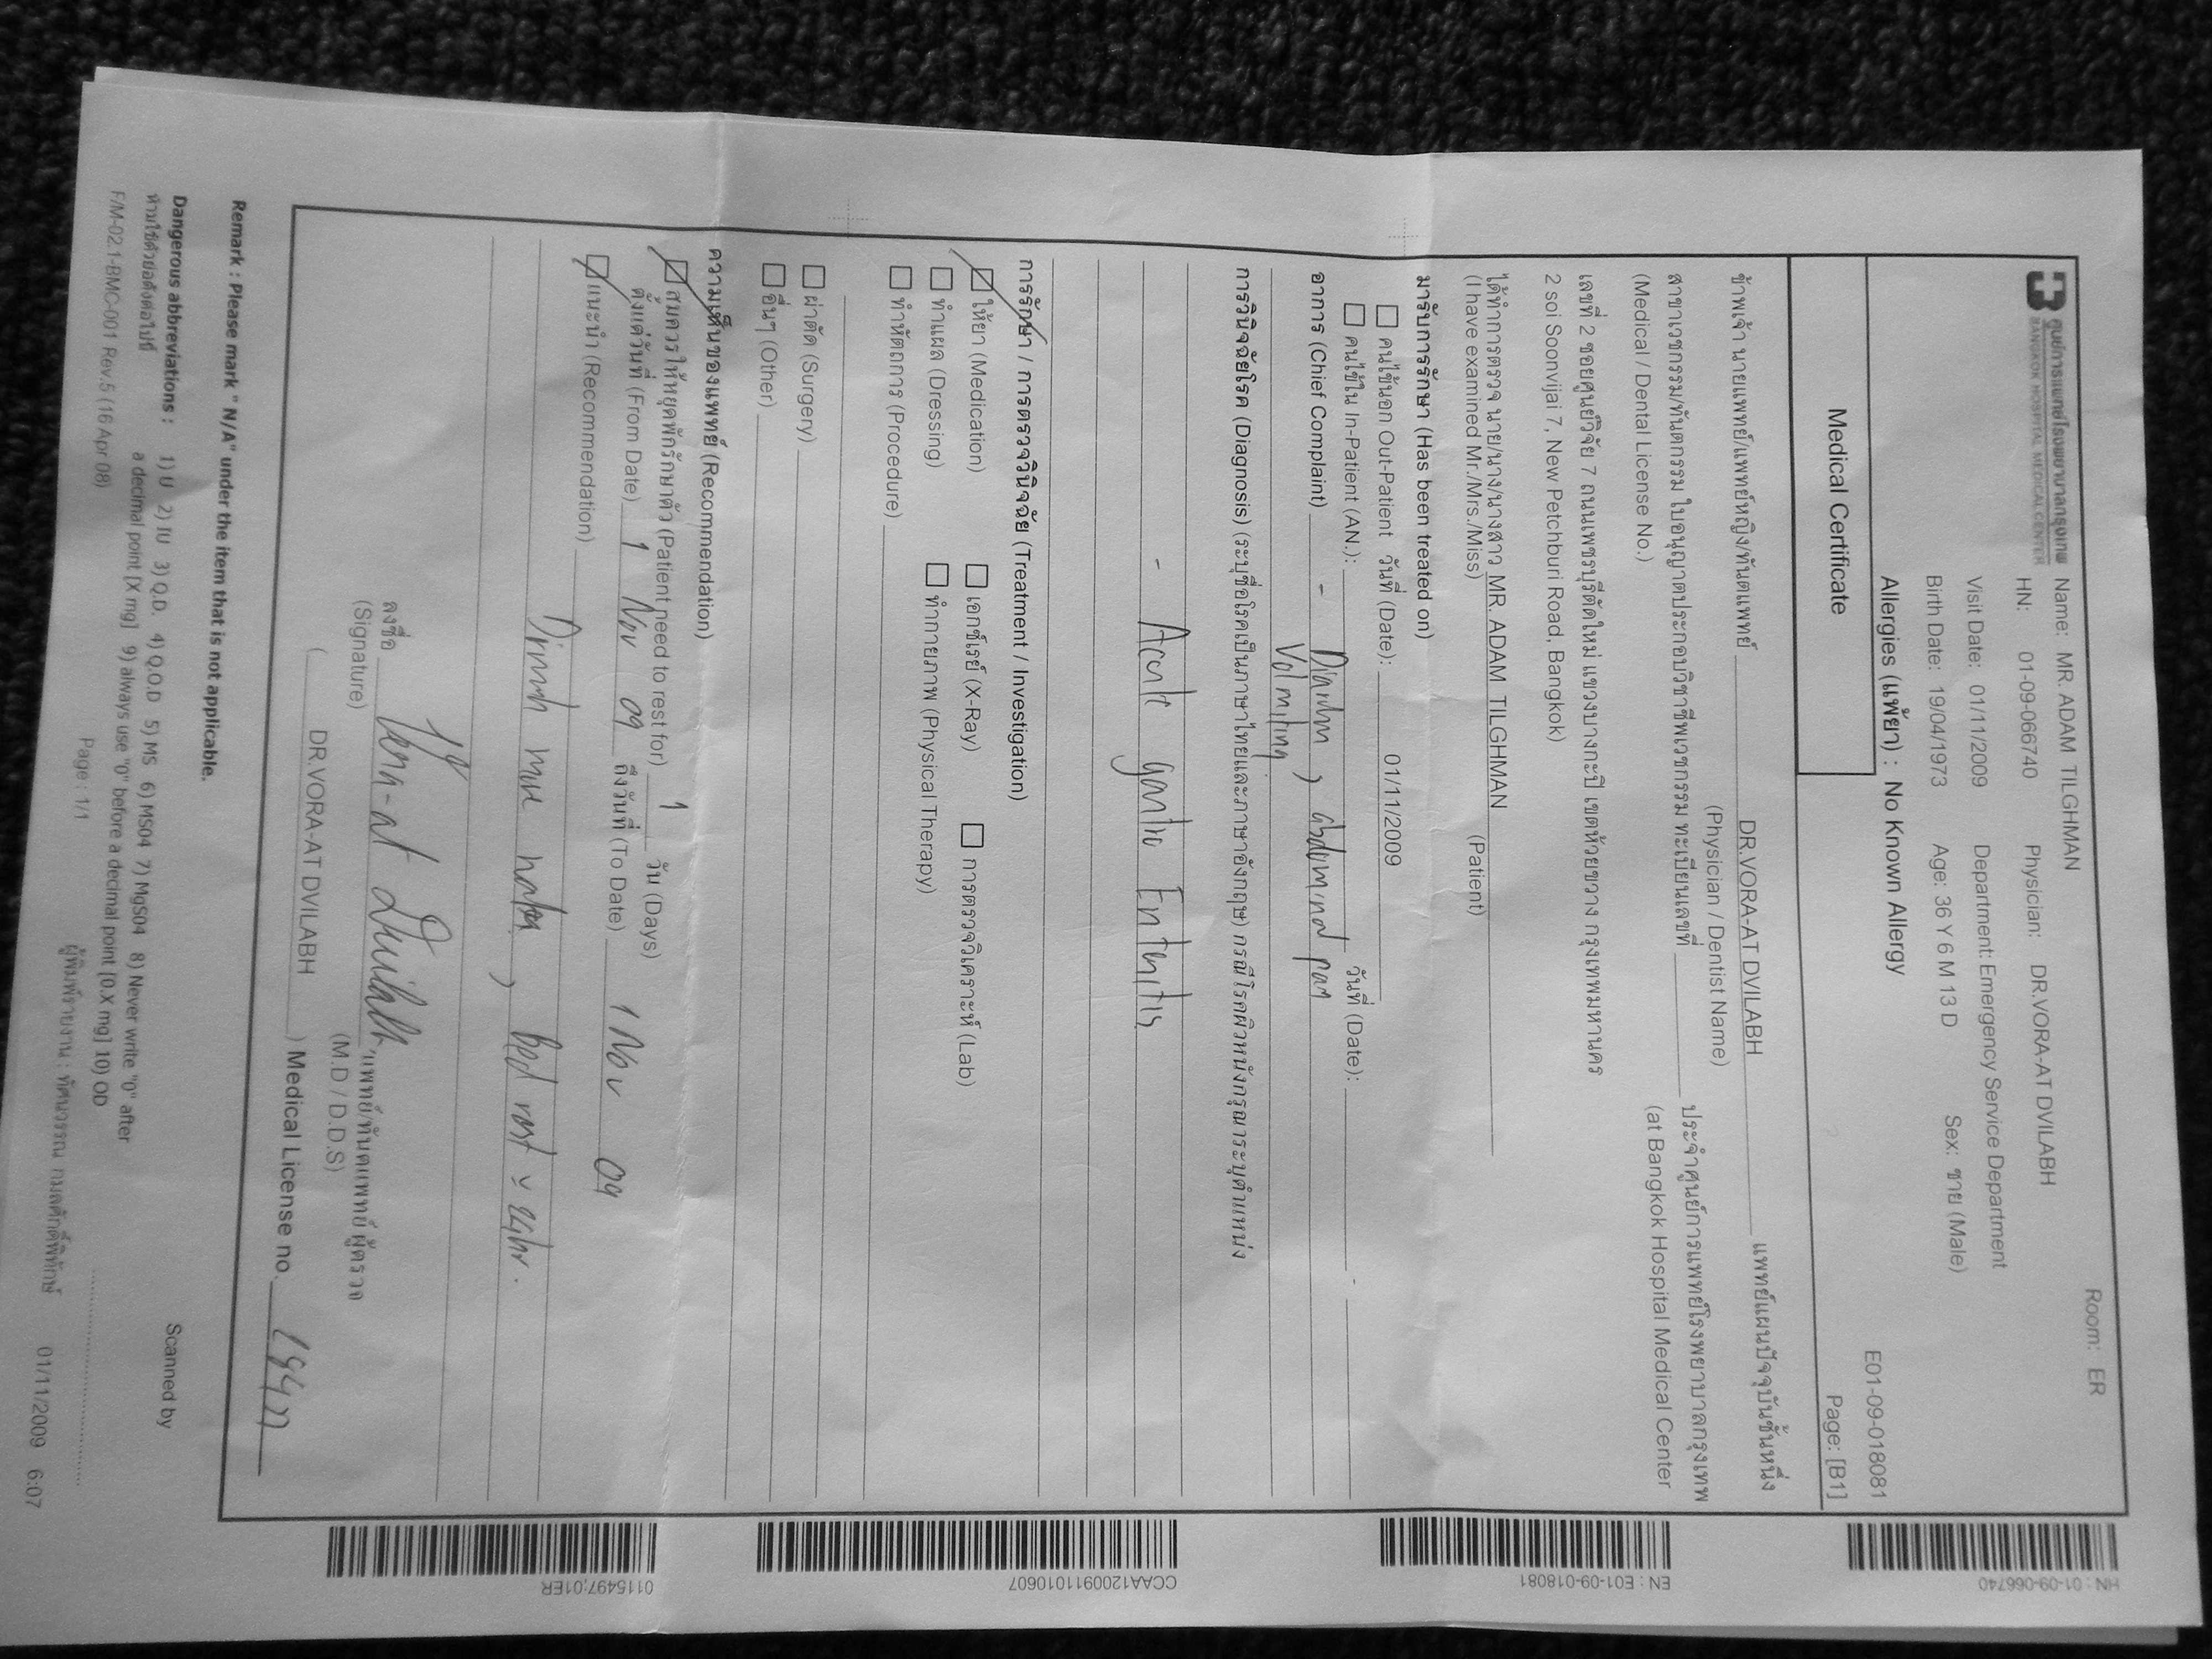 ศูนย์การแพทย์โรงพยาบาลกรุงเทพ
BANGKOK HOSPITAL MEDICAL CENTER
Room: ER
Name: MR. ADAM TILGHMAN
HN: 01-09-066740 Physician: DR.VORA-AT DVILABH
Visit Date: 01/11/2009 Department: Emergency Service Department
Birth Date: 19/04/1973 Age: 36 Y 6 M 13 D Sex: ชาย (Male)
Allergies (แพ้ยา) : No Known Allergy
E01-09-018081
Medical Certificate
Page: [B1]
ข้าพเจ้า นายแพทย์/แพทย์หญิง/ทันตแพทย์ DR.VORA-AT DVILABH แพทย์แผนปัจจุบันชั้นหนึ่ง
(Physician / Dentist Name)
สาขาเวชกรรม/ทันตกรรม ใบอนุญาตประกอบวิชาชีพเวชกรรม ทะเบียนเลขที่ ประจำศูนย์การแพทย์โรงพยาบาลกรุงเทพ
(Medical / Dental License No.) (at Bangkok Hospital Medical Center
เลขที่ 2 ซอยศูนย์วิจัย 7 ถนนเพชรบุรีตัดใหม่ แขวงบางกะปิ เขตห้วยขวาง กรุงเทพมหานคร
2 soi Soonvijai 7, New Petchburi Road, Bangkok)
ได้ทำการตรวจ นาย/นาง/นางสาว MR. ADAM TILGHMAN
(I have examined Mr./Mrs./Miss) (Patient)
มารับการรักษา (Has been treated on)
คนไข้นอก Out-Patient วันที่ (Date): 01/11/2009
คนไข้ใน In-Patient (AN.): วันที่ (Date): -
อาการ (Chief Complaint) - Diarrhea, abdominal pain
Volmiting
การวินิจฉัยโรค (Diagnosis) (ระบุชื่อโรคเป็นภาษาไทยและภาษาอังกฤษ) กรณีโรคผิวหนังกรุณาระบุตำแหน่ง
- Acute gastro Enteritis
การรักษา / การตรวจวินิจฉัย (Treatment / Investigation)
ให้ยา (Medication) เอกซ์เรย์ (X-Ray) การตรวจวิเคราะห์ (Lab)
ทำแผล (Dressing) ทำกายภาพ (Physical Therapy)
ทำหัตถการ (Procedure)
ผ่าตัด (Surgery)
อื่นๆ (Other)
ความเห็นของแพทย์ (Recommendation)
สมควรให้หยุดพักรักษาตัว (Patient need to rest for) 1 วัน (Days)
ตั้งแต่วันที่ (From Date) 1 Nov 09 ถึงวันที่ (To Date) 1 Nov 09
แนะนำ (Recommendation)
Drink more water, bed rest 24hr.
ลงชื่อ Vora-at Dvilabh แพทย์/ทันตแพทย์ ผู้ตรวจ
(Signature) (M.D / D.D.S)
( DR.VORA-AT DVILABH ) Medical License no.
Remark : Please mark " N/A" under the item that is not applicable.
Dangerous abbreviations : 1) U 2) IU 3) Q.D. 4) Q.O.D 5) MS 6) MS04 7) MgS04 8) Never write "0" after
ห้ามใช้ตัวย่อดังต่อไปนี้ a decimal point [X mg] 9) always use "0" before a decimal point [0.X mg] 10) OD
Scanned by
F/M-02.1-BMC-001 Rev.5 (16 Apr 08)
Page : 1/1
ผู้พิมพ์รายงาน : ทัศนวรรณ กมลศักดิ์พิทักษ์ 01/11/2009 6:07
HN : 01-09-066740
EN : E01-09-018081
CCAA1200911010607
0115497;01ER